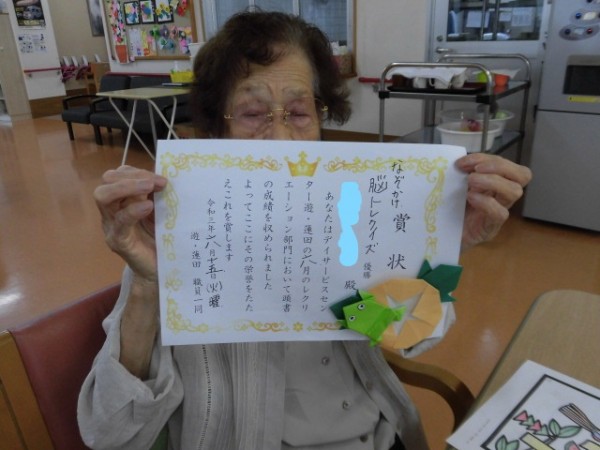 賞状
なぞかけ
脳トレクイズ 優勝
殿
あなたはデイサービスセン
ター遊・蓮田の六月のレクリ
エーション部門において頭書
の成績を収められました
よってここにその栄誉をたた
えこれを賞します
令和三年六月十五日(火)曜
遊・蓮田 職員一同